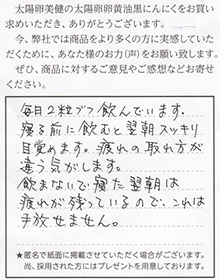 太陽卵美健の太陽卵卵黄油黒にんにくをお買い
求めいただき、ありがとうございます。
今、弊社では商品をより多くの方に実感していた
だくために、あなた様のお力(声)をお願い致します。
ぜひ、商品に対するご意見やご感想などお寄せ
ください。
毎日2粒ずつ飲んでいます。
寝る前に飲むと翌朝スッキリ
目覚めます。疲れの取れ方が
違う気がします。
飲まないで寝た翌朝は
疲れが残っているので、これは
手放せません。
★匿名で紙面に掲載させていただく場合がございます。
尚、採用された方にはプレゼントを用意しております。